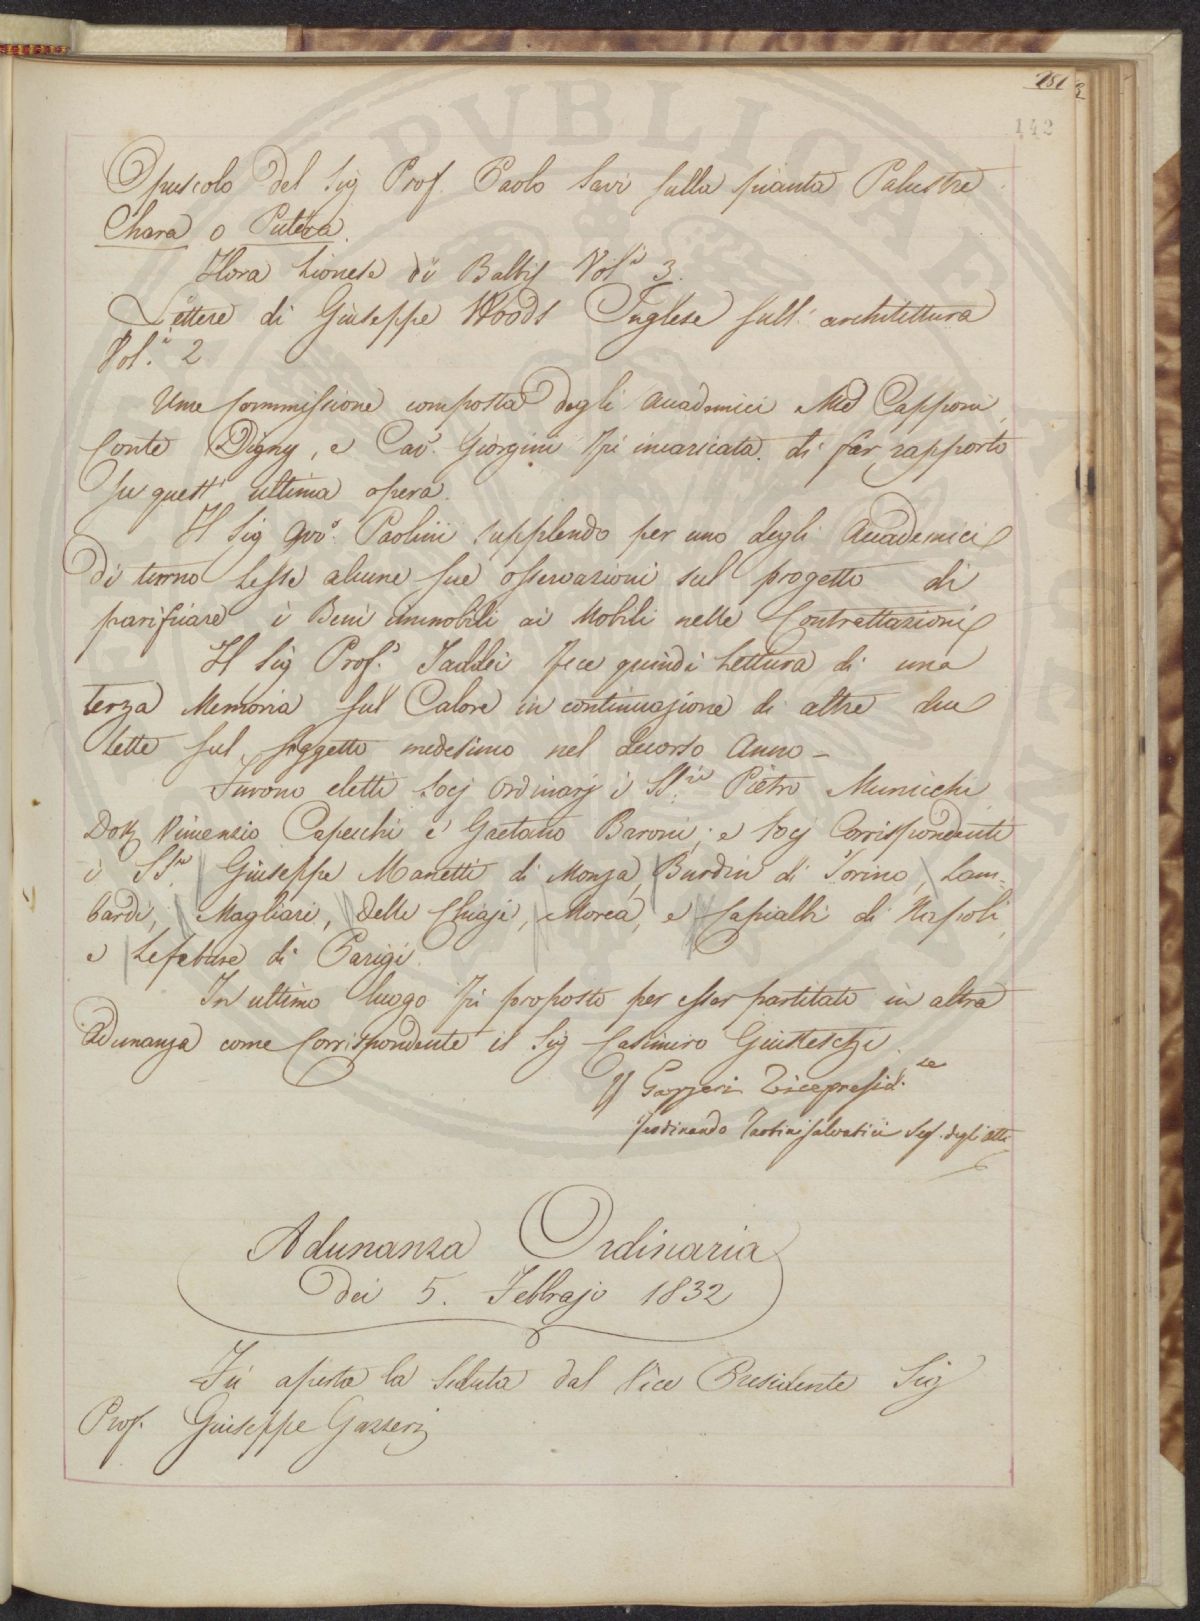 281
142
Opuscolo del Sig Prof. Paolo Savi sulla pianta Palustre
Chara o Putera.
Flora Lionese di Balbis Vol.i 3.
Lettere di Giuseppe Woods Inglese sull' architettura
Vol.i 2
Una Commissione composta degli Accademici Capponi,
Conte Digny, e Cav.r Giorgini fu incaricata di far rapporto
su quest' ultima opera.
Il Sig Avv.o Paolini supplendo per uno degli Accademici
di turno Lesse alcune sue osservazioni sul progetto di
parificare i Beni immobili ai Mobili nelle Contrattazioni
Il Sig Prof.r Taddei fece quindi Lettura di una
terza Memoria sul Calore in continuazione di altre due
Lette sul soggetto medesimo nel decorso Anno -
Furono eletti Socj Ordinarj i SS.ri Pietro Municchi
Dott Vincenzio Capecchi e Gaetano Baroni; e Socj Corrispondenti
i SS.ri Giuseppe Manetti di Monza, Burdin di Torino, Lom=
bardi, Magliari, Delle Chiaje, Morea, e Capialbi di Napoli,
e Lefebure di Parigi.
In ultimo luogo fu proposto per esser partitato in altra
Adunanza come Corrispondente il Sig Casimiro Giusteschi.
G Gazzeri Vicepresid.te
Ferdinando Tartini Salvatici Seg. degli Atti
Adunanza Ordinaria
dei 5. Febbrajo 1832
Fu aperta la Seduta dal Vice Presidente Sig
Prof. Giuseppe Gazzeri